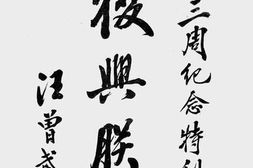 三周纪念特刊
復興朕
汪曾武